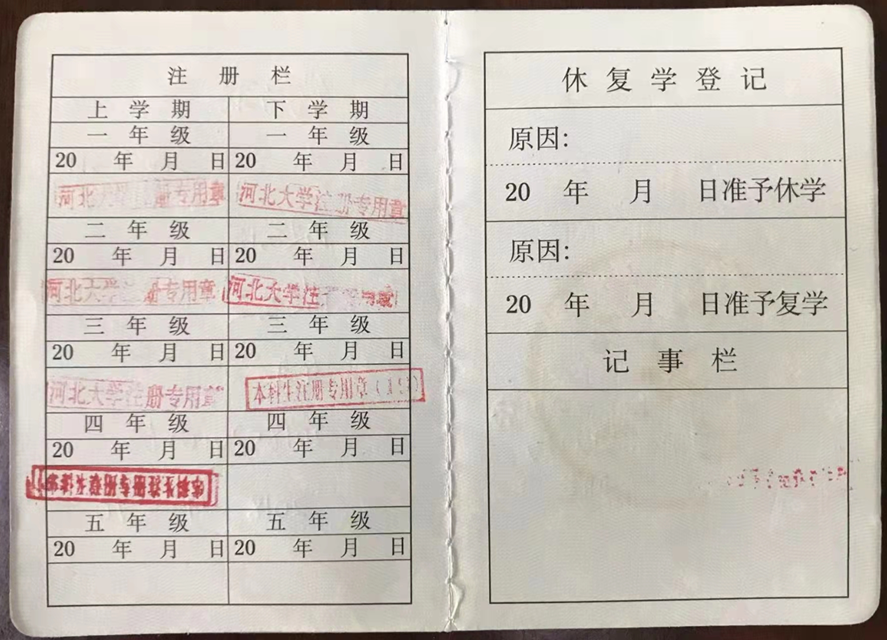 注 册 栏
上 学 期 下 学 期
一 年 级 一 年 级
20 年 月 日 20 年 月 日
河北大 册专用章 河北大学注册专用章
二 年 级 二 年 级
20 年 月 日 20 年 月 日
河北大 册专用章 河北大学注
三 年 级 三 年 级
20 年 月 日 20 年 月 日
河北大学注册专用章 本科生注册专用章
四 年 级 四 年 级
20 年 月 日 20 年 月 日
本科生注册专用章
五 年 级 五 年 级
20 年 月 日 20 年 月 日
休 复 学 登 记
原因:
20 年 月 日准予休学
原因:
20 年 月 日准予复学
记 事 栏